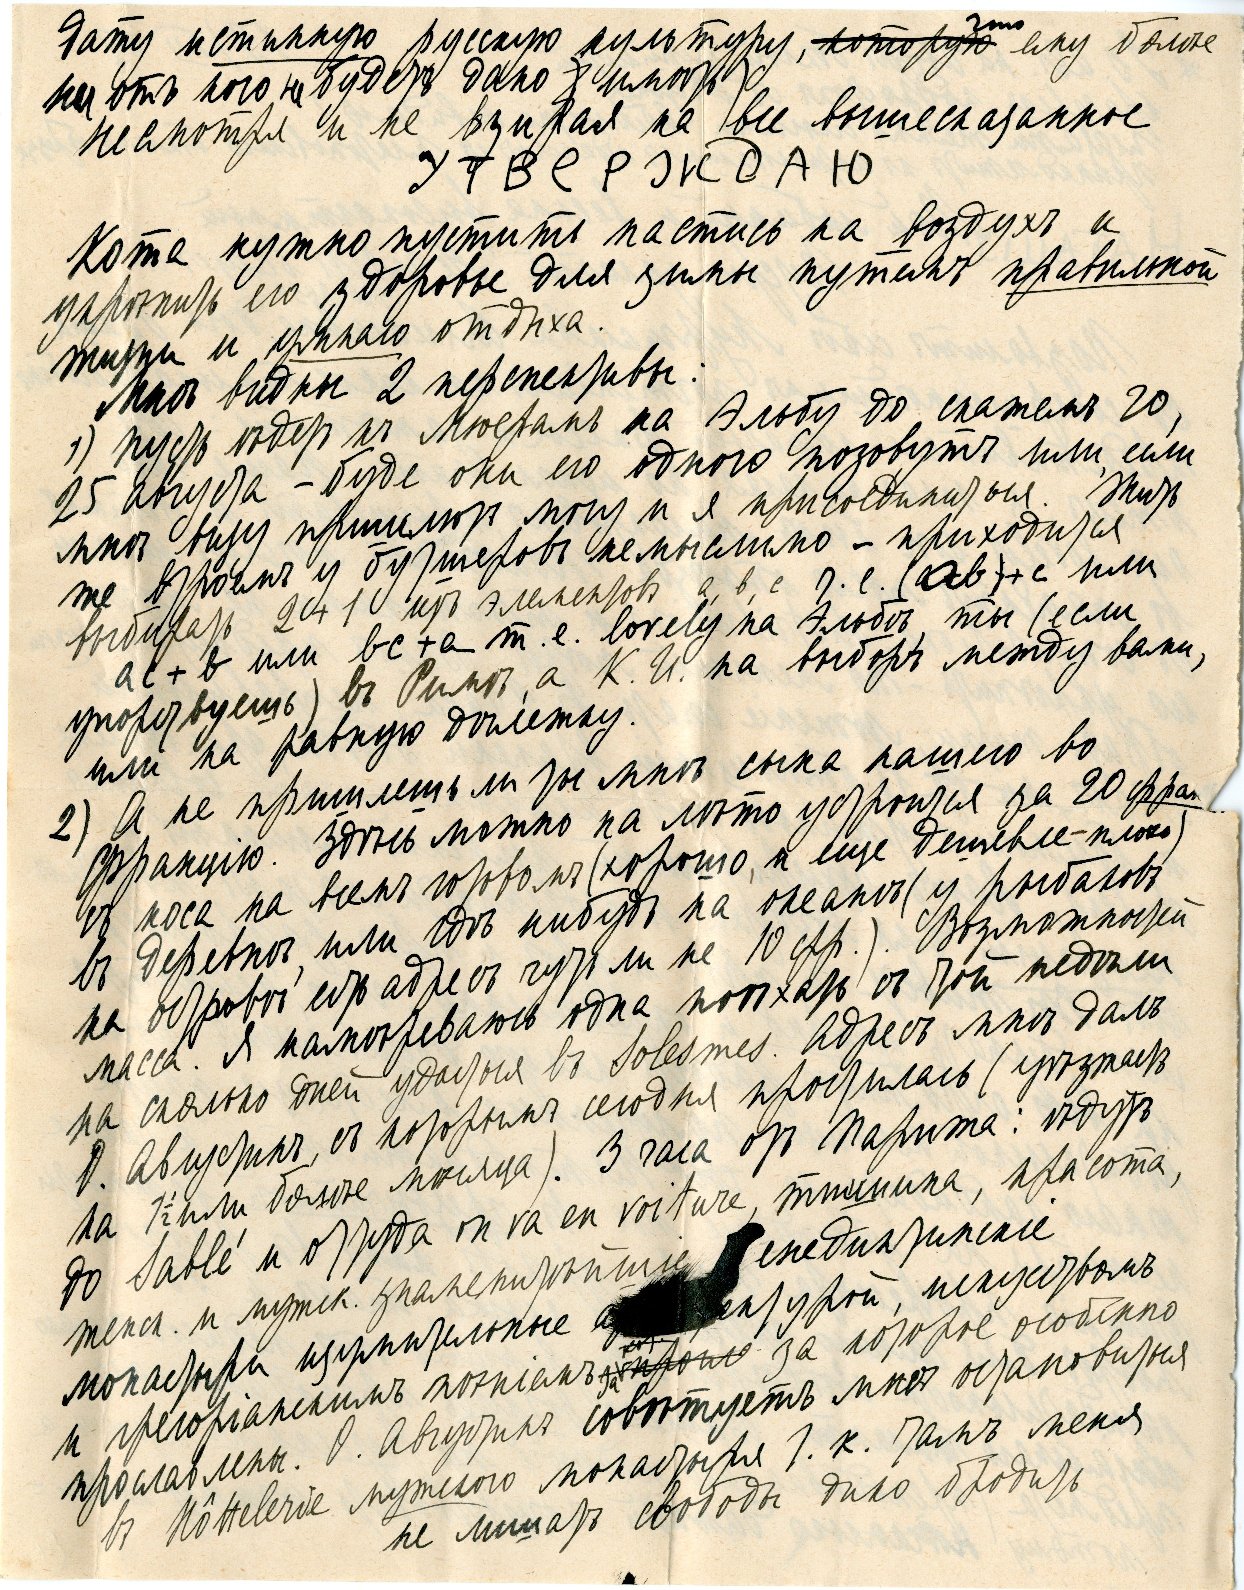 дату истинную русскую культуру, которую что ему более
ни отъ кого не будетъ дано
несмотря и не взирая на все вышесказанное
УТВЕРЖДАЮ
Кота нужно пустить пастись на воздухъ и
укрѣпить его здоровье для зимы путемъ правильной
жизни и отдыха.
Мнѣ видны 2 перспективы:
1) пусть ѣдетъ къ на Эльбу до скажемъ 20,
25 августа – буде они его одного позовутъ или, если
мнѣ визу пришлютъ могу и я присоединиться. Жить
же втроемъ у немыслимо – приходится
выбирать 2+1 изъ элементовъ a, b, c т.е. (ab)+c или
ac+b или bc+a т.е. lovely на Эльбѣ, ты (если
упорствуешь) въ Римѣ, а К. И. на выборъ между вами,
или на равную дѣлежку.
2) А не пришлешь ли ты мнѣ сына нашего во
Францію. Здѣсь можно на лѣто устроится за 20 фран.
съ носа на всемъ готовомъ (хорошо, и еще дешевле – плохо)
въ деревнѣ, или гдѣ нибудь на океанѣ (у рыбаковъ
на островѣ есть адресъ чуть ли не 10 фр.). Возможностей
масса. Я намѣреваюсь одна поѣхать съ той недѣли
на сколько дней удастся въ Solesmes. Адресъ мнѣ далъ
О. Августинъ, съ которымъ сегодня простилась (уѣзжаетъ
на 1½ или болѣе мѣсяца). 3 часа отъ Парижа: ѣдутъ
до Sablé и оттуда on va en voiture, тишина, красота,
женск. и мужск. знаменитѣйшіе бенедиктинскіе
монастыри изумительные архитектурой, искусствомъ
и грегоріанскимъ пѣніемъ за кот. за которое особенно
прославлены. О. Августинъ совѣтуетъ мнѣ остановиться
въ Hôttelerie мужского монастыря т. к. тамъ меня
не лишатъ свободы дико бродить